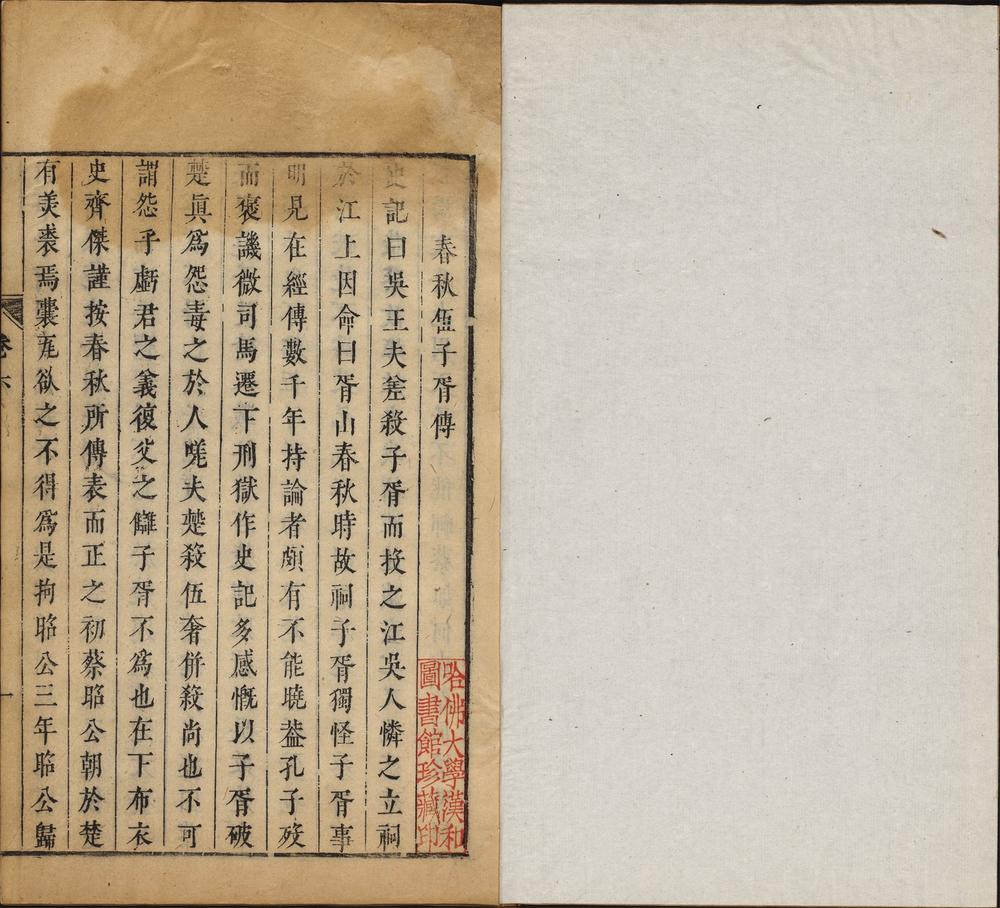 春秋伍子胥傳
史記曰吳王夫差殺子胥而投之江吳人憐之立祠
於江上因命曰胥山春秋時故祠子胥獨怪子胥事
明見在經傳數千年持論者頗有不能曉葢孔子歿
而褒譏微司馬遷下刑獄作史記多感慨以子胥破
楚眞爲怨毒之於人嘵夫楚殺伍奢併殺尚也不可
謂怨乎虧君之義復父之讎子胥不爲也在下布衣
史齊傑謹按春秋所傳表而正之初蔡昭公朝於楚
有美裘焉囊瓦欲之不得爲是拘昭公三年昭公歸
卷六
一
哈佛大學漢和
圖書館珍藏印